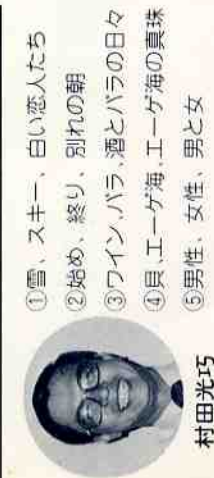 ①雪、スキー、白い恋人たち
②始め、終り、別れの朝
③ワイン、バラ、酒とバラの日々
④貝、エーゲ海、エーゲ海の真珠
⑤男性、女性、男と女
村田光巧